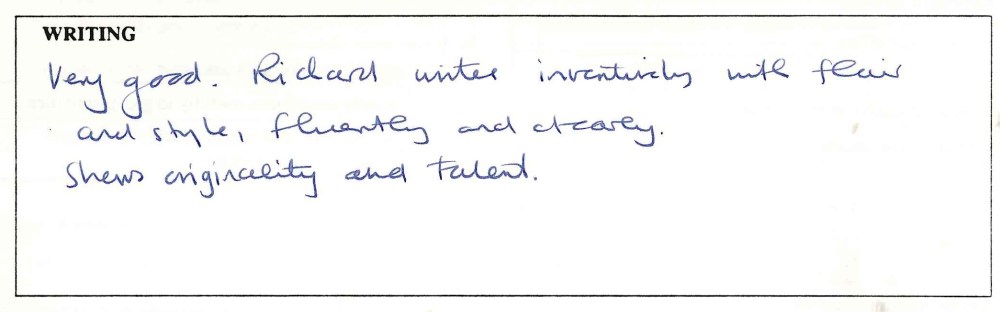 WRITING
Very good. Richard writes inventively with flair
and style, fluently and clearly.
Shows originality and talent.